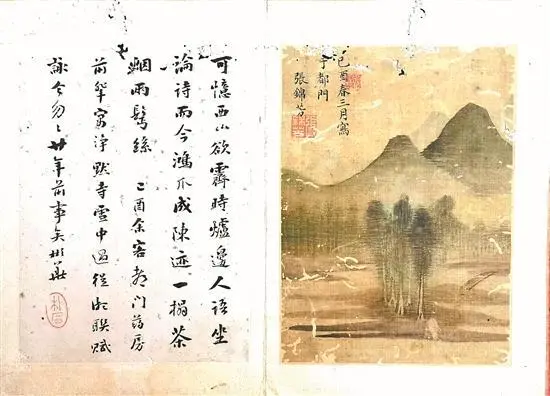 己酉春三月寫
于都門
張錦芳
可憶西山欲霽時爐邊人語坐
論诗而今鴻爪成陳迹一榻茶
烟兩鬓絲 己酉余客都门药房
前輩寓淨默寺雪中過從相聯賦
詠今勿勿廿年前事矣彬華